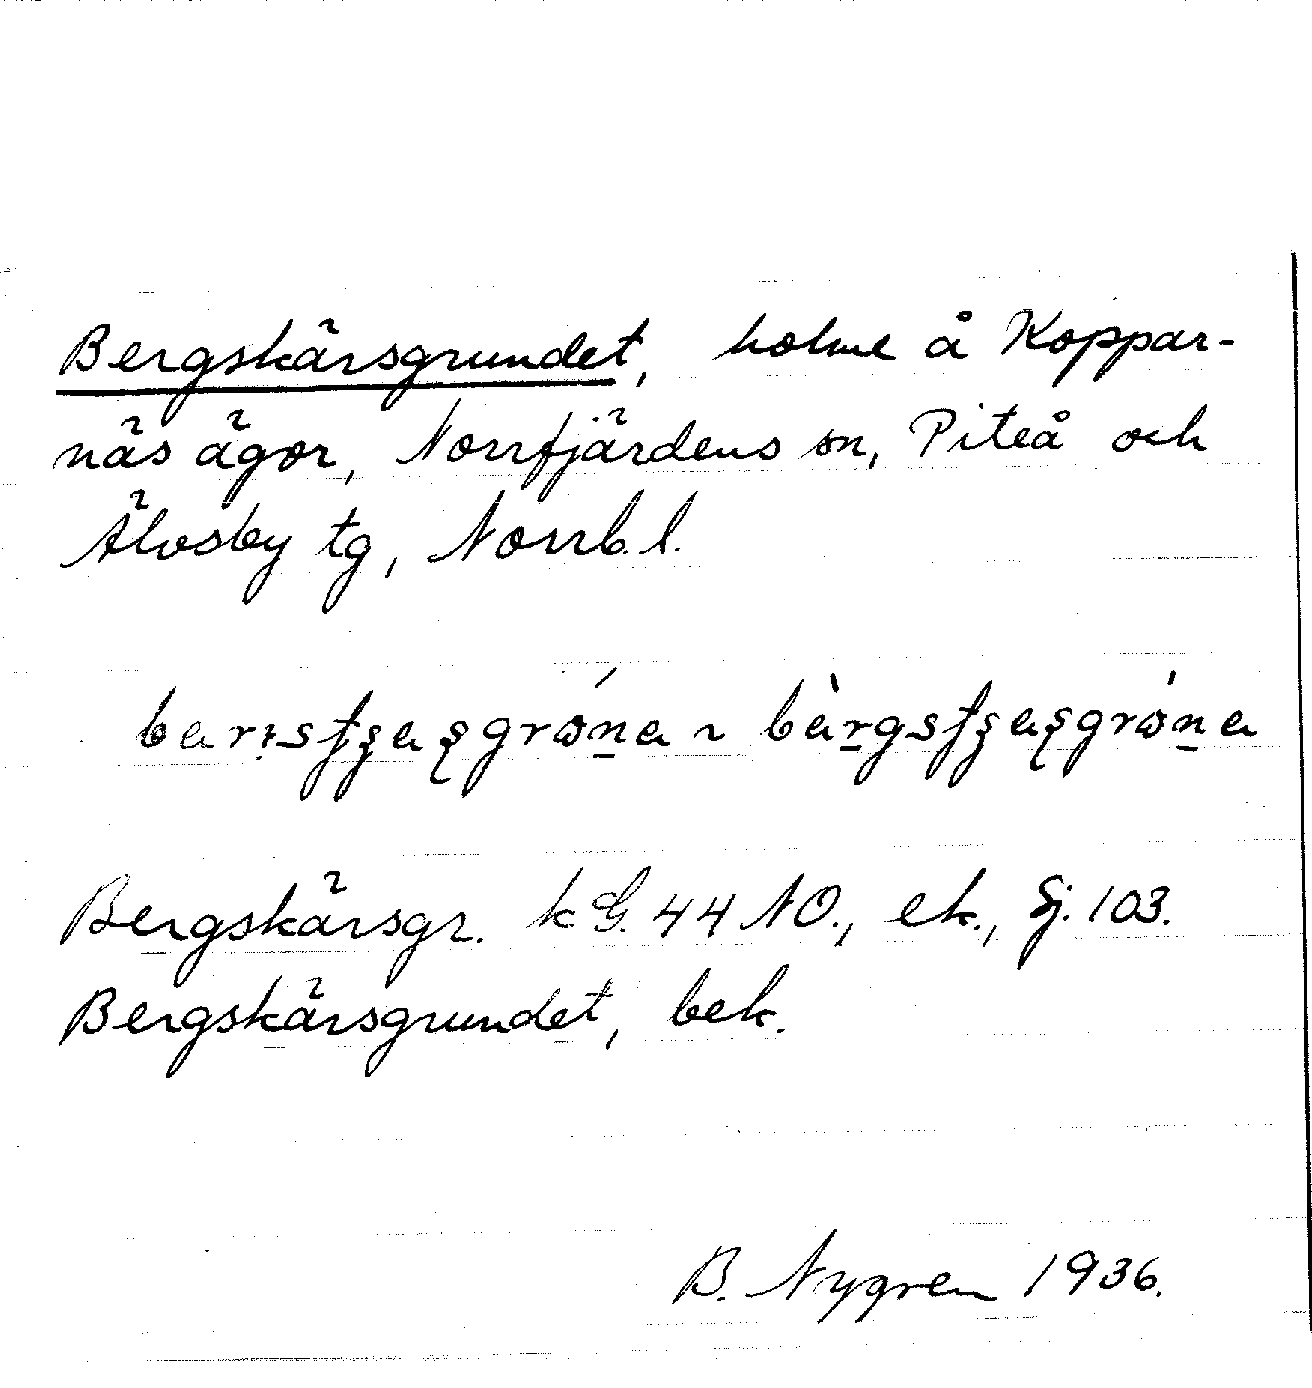 Bergskärsgrundet, holme å Koppar-
näs ägor, Norrfjärdens sn, Piteå och
Älvsby tg, Norrb. l.
Bergskärsgr. kG. 44 NO., ek., Sj. 103.
Bergskärsgrundet, bek.
B. Nygren 1936.